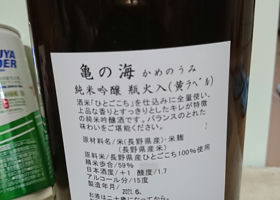 亀の海 かめのうみ
純米吟醸 瓶火入(黄ラベル)
酒米「ひとごこち」を仕込みに全量使い、
上品な香りとすっきりとしたキレが特徴
の純米吟醸酒です。バランスのとれた
味わいをご堪能ください。
原材料名/米(長野県産)・米麹
(長野県産米)
原料米/長野県産ひとごこち100%使用
精米歩合/59%
日本酒度/+1 酸度/1.7
アルコール分/15度
製造年月/2021.6.
お酒は二十歳になってから